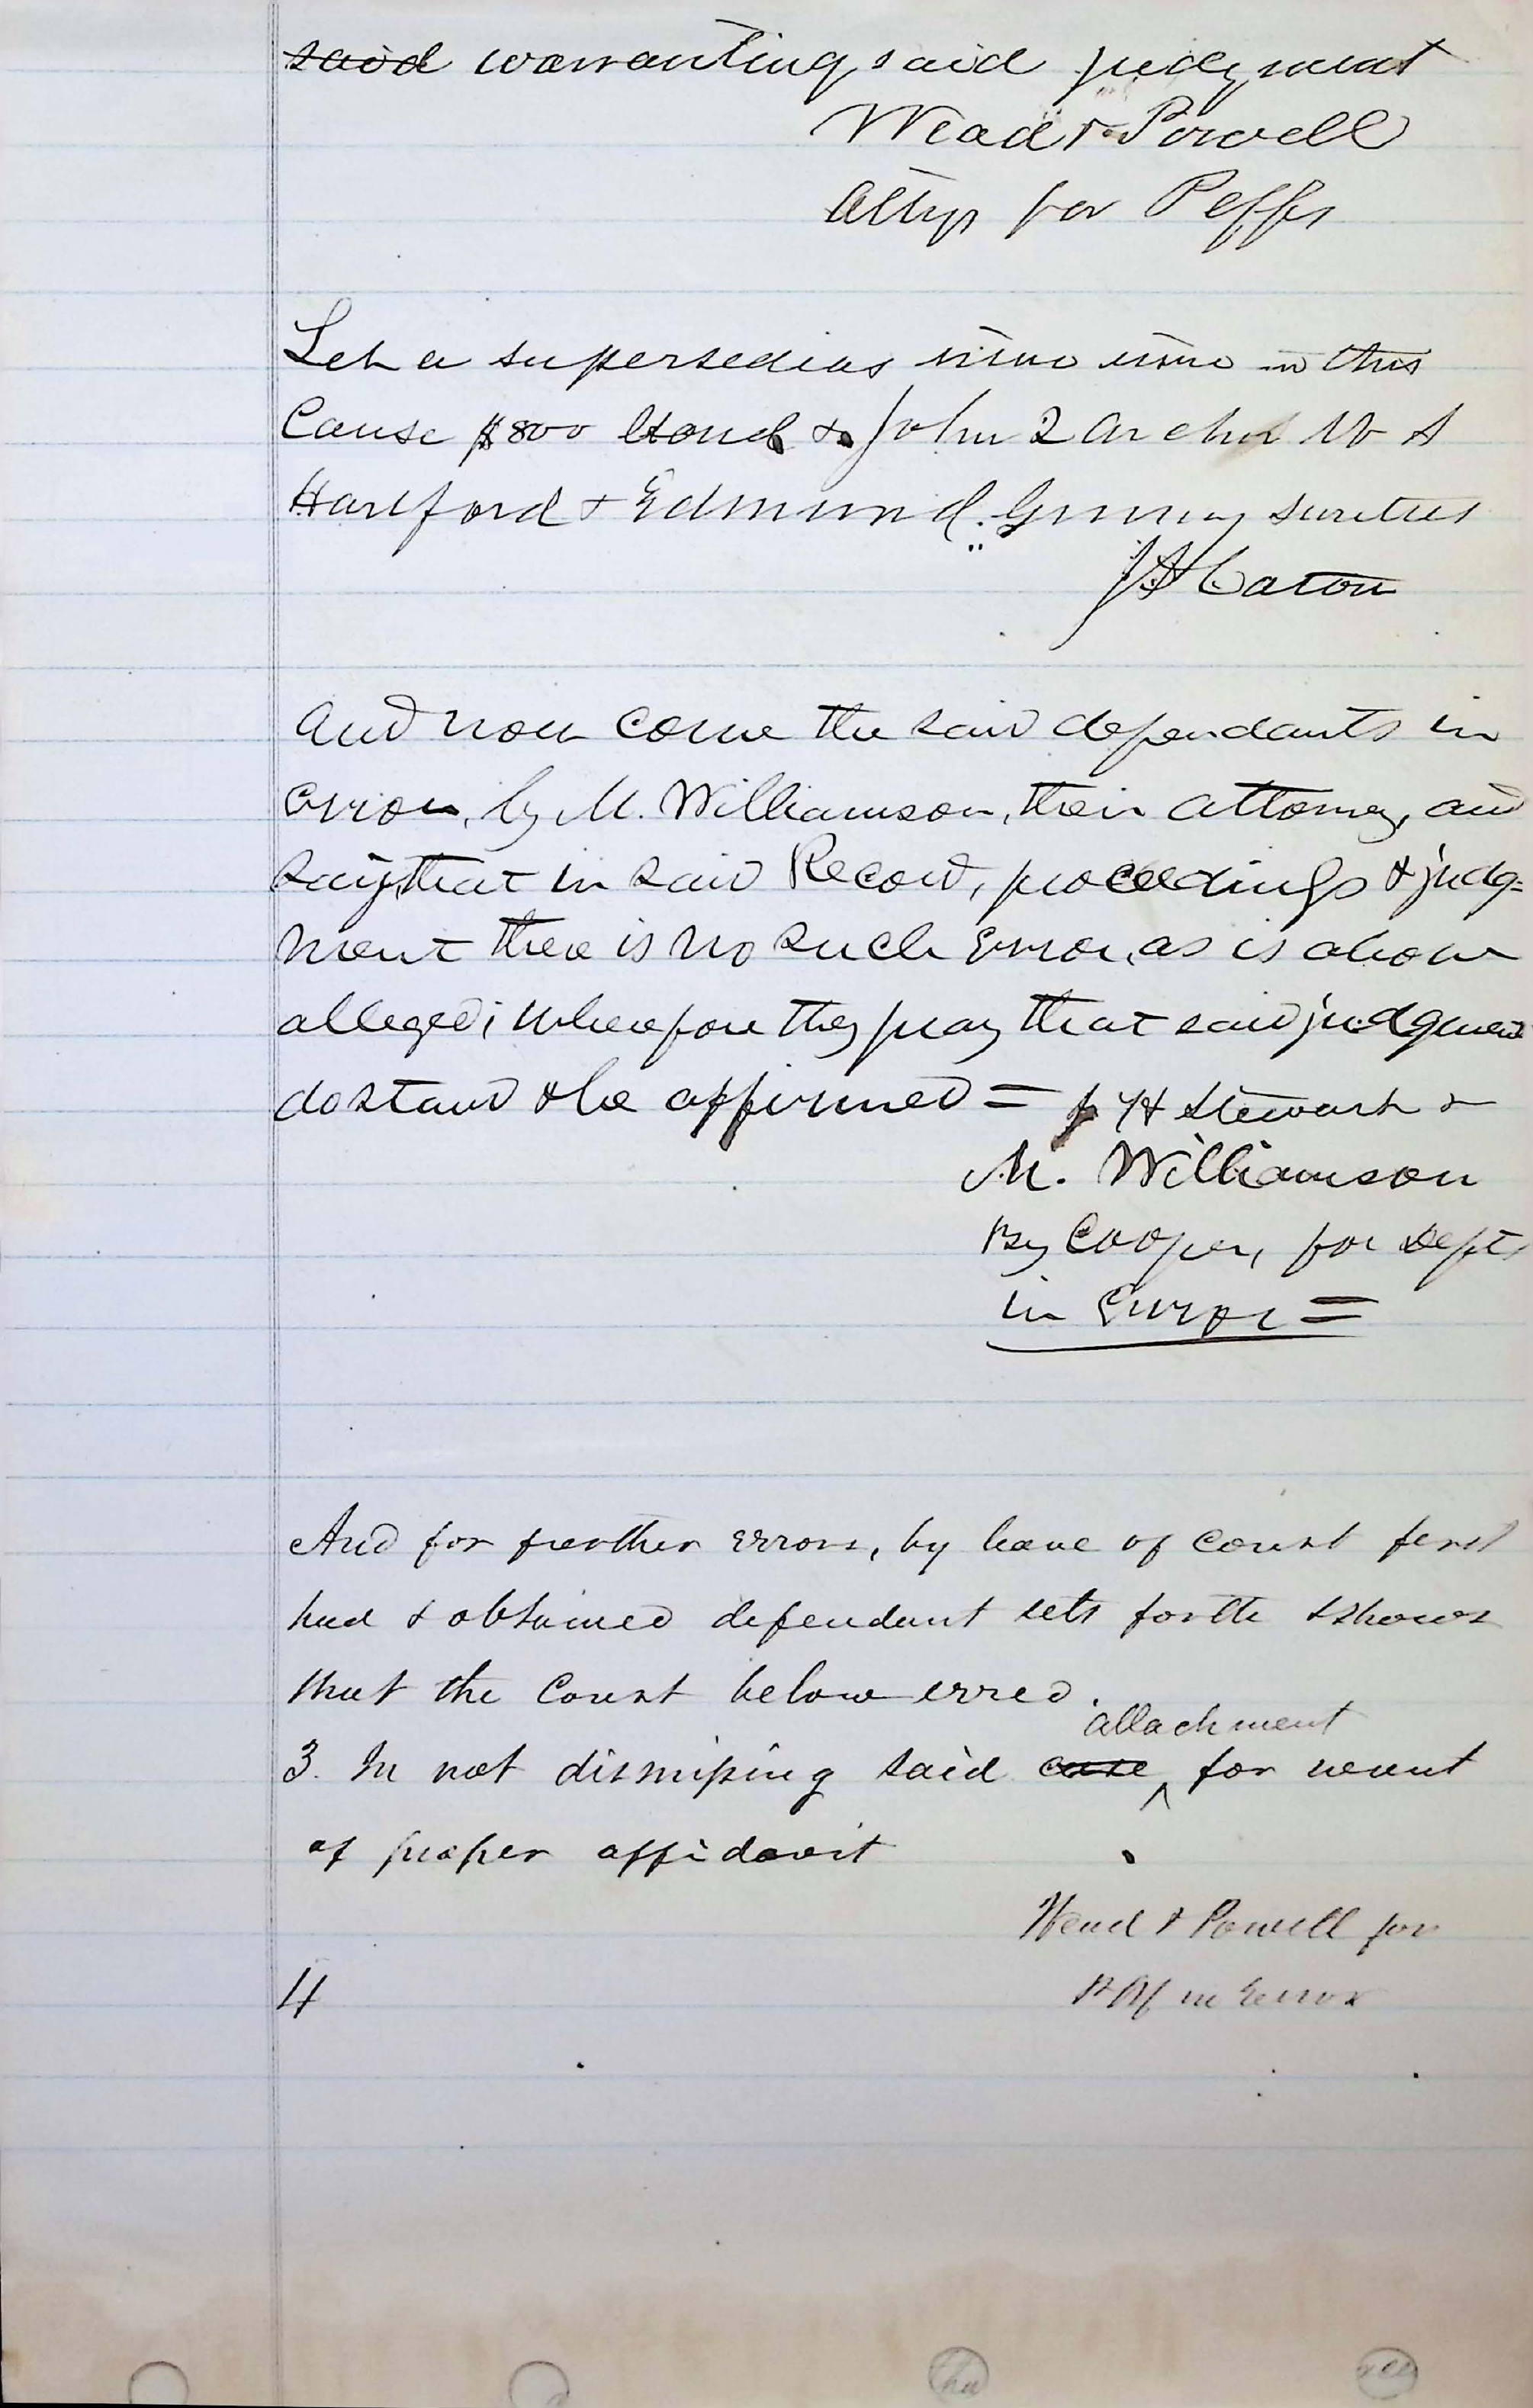 ~~said~~ warranting said judgment
Wead & Powell
Attys for Peffs
Let a supersedias issue in this
Cause $800 Bond & John Q Archer W S
Hartford & Edmund sureties
J D Caton
And now come the said defendants in
error, by M. Williamson, their attorney, and
say, that in said Record, proceedings & judg=
ment there is no such error, as is above
alleged; Wherefore they pray that said judgment
do stand & be affirmed = H Stewart &
M. Williamson
By Cooper, for Defts
in Error =
And for further errors, by leave of court first
had & obtained defendant sets forth & shows
that the Court below erred.
attachment
3. In not dismissing said ~~case~~ ^ for want
of proper affidavit
Wead & Powell for
Plff in Error
4